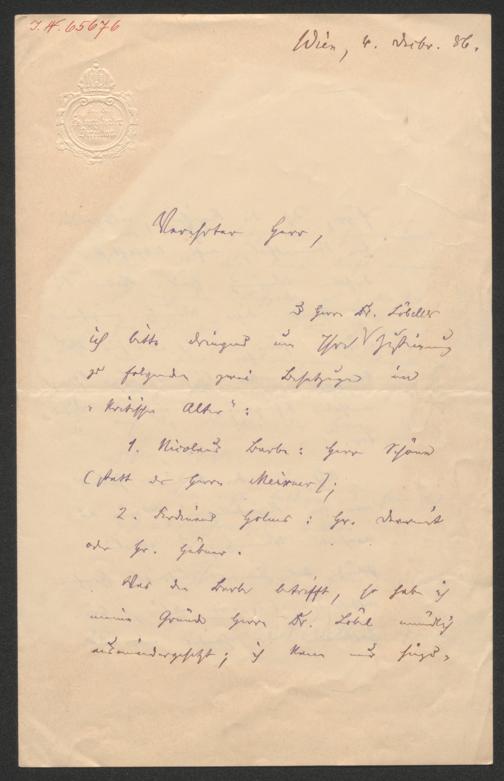 I. N. 65676
Wien, 4. Dezbr. 86.
Verehrter Herr,
Herrn Dr. Löbells
ich bitte dringend um Ihre Zustimmung
zu folgenden zwei Besetzungen im
„Kritische Alter“:
1. Nicolaus Barbe: Herr Schöne
(statt des Herrn Meixner);
2. Ferdinand Holms: Hr. Devrient
oder Hr. Hübner.
Was den Barbe betrifft, so habe ich
meine Gründe Herrn Dr. Löbel mündlich
auseinandergesetzt; ich kann nur hinzu-